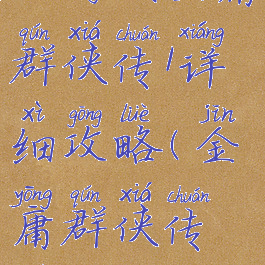 qún xiá chuán xiáng
群侠传/详
xì gōng lüè jīn
细攻略(金
yōng qún xiá chuán
庸群侠传